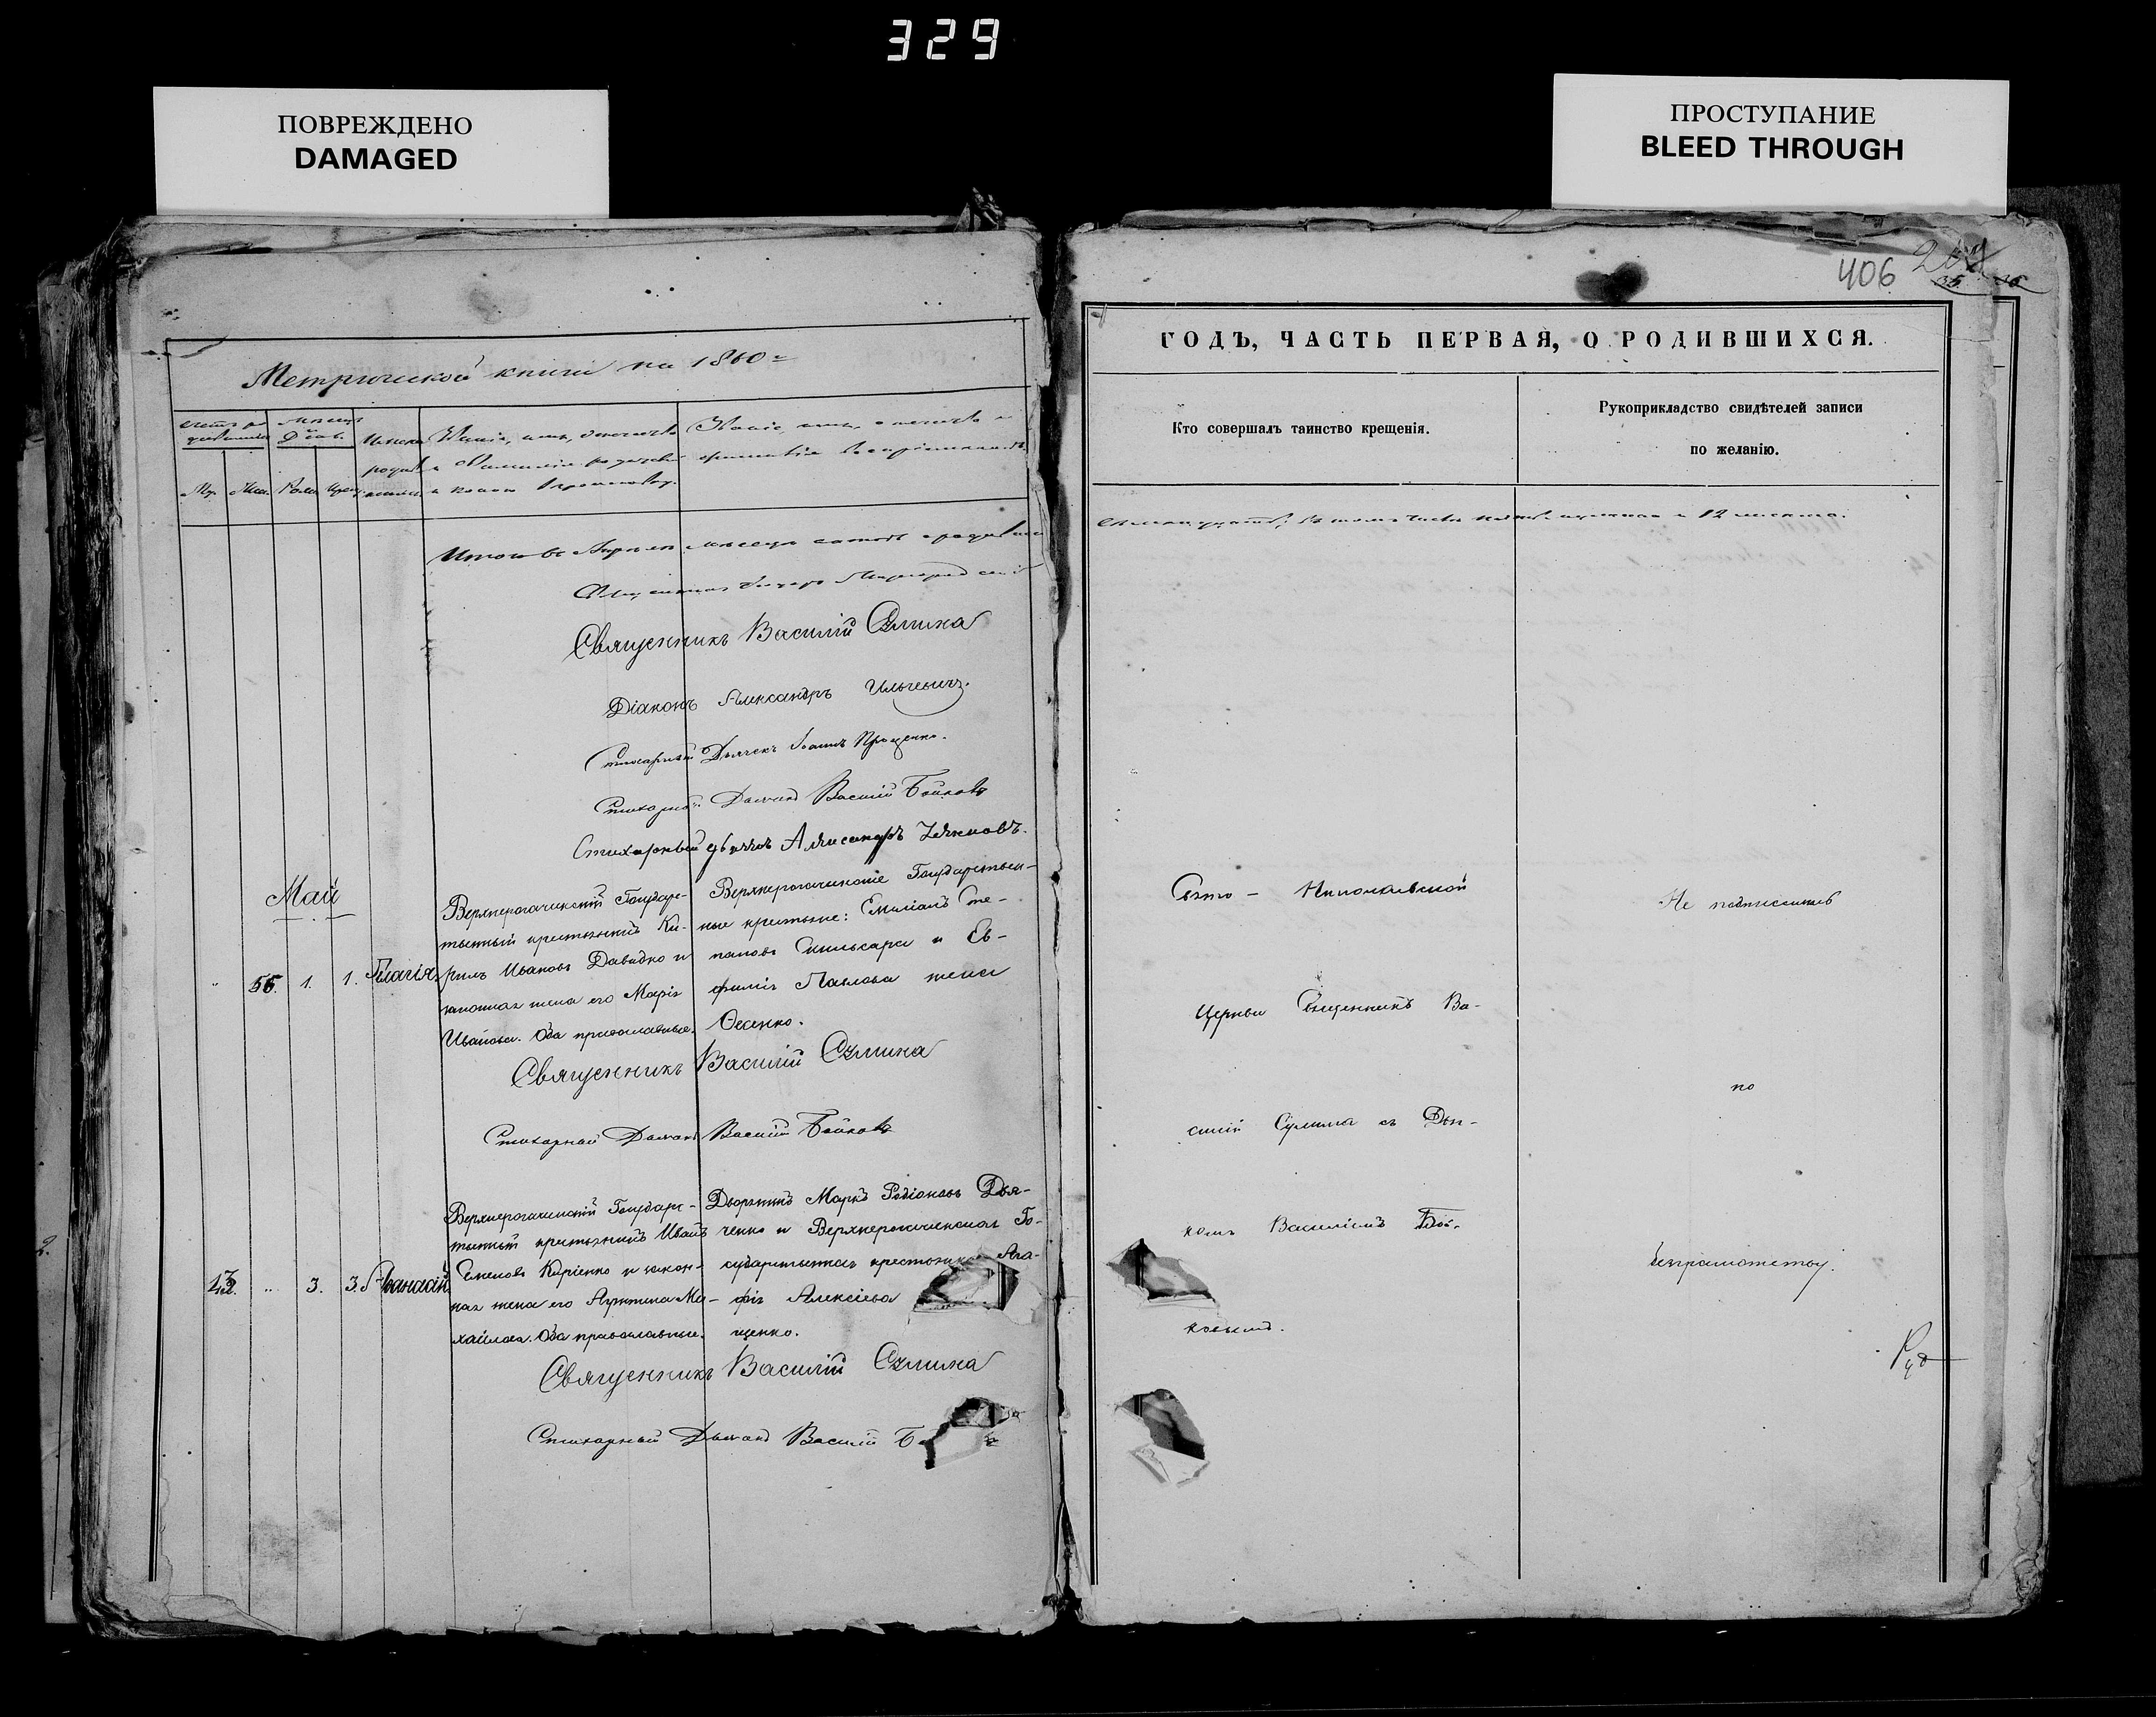 329
ПОВРЕЖДЕНО
DAMAGED
ПРОСТУПАНИЕ
BLEED THROUGH
406
Метрической книги на 1860 г
Мѣсяцъ
Имена Званіе, имя, отечество
Званіе, имя, отечество и
и фамилія родителей
фамилія воспріемниковъ
Му. Жен. Рожд. Крещ.
Итого въ Апрѣлѣ мѣсяцѣ
Священникъ Василій Сулима
Діаконъ Александръ
Стихарный Дьячекъ Іоаннъ Проценко.
Стихарный Дьячекъ Василій Бойковъ
Стихарный дьячекъ Александръ
Май
55. 1. 1. Пелагія
Верхнерогачикскій Государс-
твенный крестьянинъ Ки-
рилъ Ивановъ Давидко и
законная жена его Марія
Иванова. Оба православные.
Верхнерогачикскіе Государствен-
ные крестьяне: Емиліанъ Сте-
пановъ и Ев-
фимія Павлова жена
Ѳесенко.
Священникъ Василій Сулима
Стихарный Дьячекъ Василій Бойковъ
3. 3. Аѳанасій
Верхнерогачикскій Государс-
твенный крестьянинъ Иванъ
Кирієнко и закон-
ная жена его Ми-
хайлова. Оба православные.
Дворянинъ Маркъ Родіоновъ Дья-
ченко и Верхнерогачикская Го-
сударственная крестьянка Ага-
фія Алексѣева
щенко.
Священникъ Василій Сулима
Стихарный Дьячекъ Василій Б
ГОДЪ, ЧАСТЬ ПЕРВАЯ, О РОДИВШИХСЯ.
Кто совершалъ таинство крещенія.
Рукоприкладство свидѣтелей записи
по желанію.
Свято - Николаевской
Церкви Священникъ Ва-
силій Сулима съ Дья-
комъ Василіемъ Бой-
ковымъ.
Не подписались
по
безграмотству.